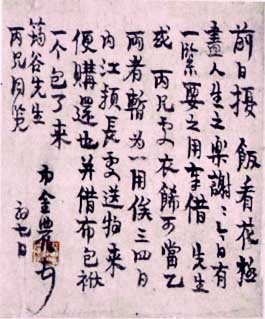 前日擾 飯看花極
盡人生之樂謝〻日有
一緊要之用奉借 先生
或 丙兄處衣飾可當乙
兩者暫為一用俟三四日
內江頴長處送物來
便購還也并借布包袱
一个包了来
筠谷先生
丙兄同覽
弟金農頓首
初七日